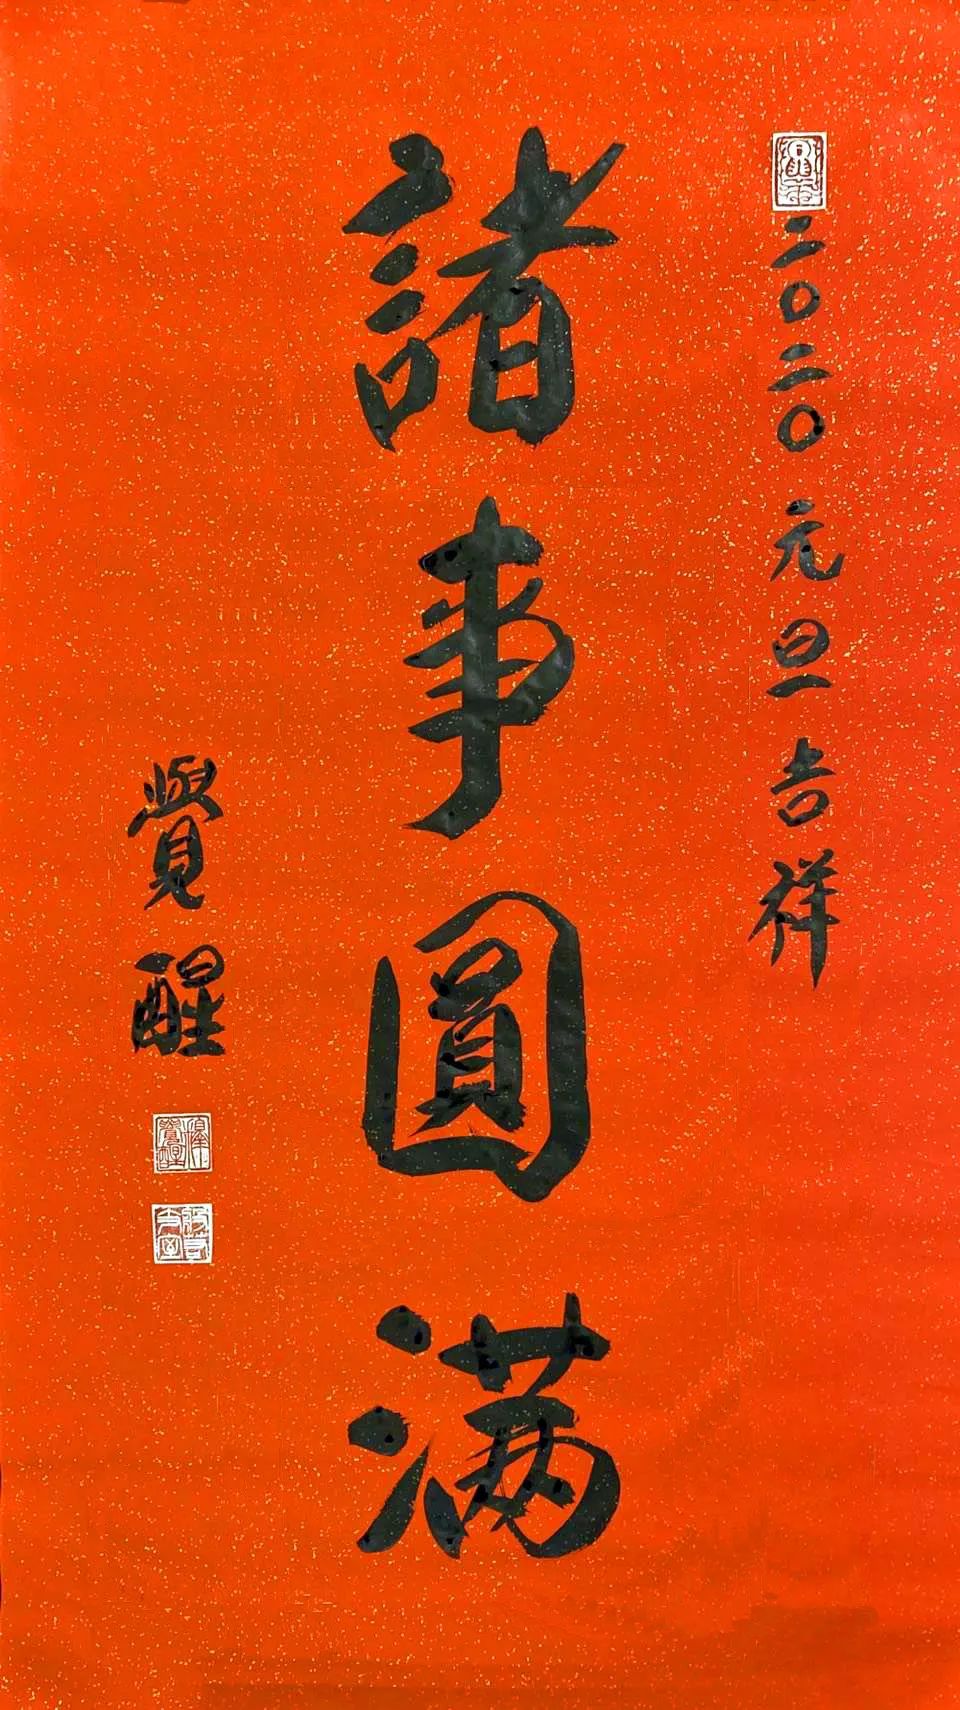 二〇二〇元旦吉祥
諸事圓满
覺醒